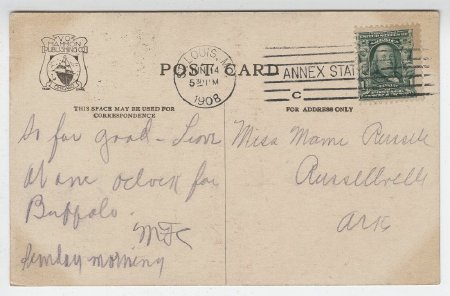 V.O.
HAMMON
PUBLISHING CO.
POST CARD
LOUIS, M
JUN 14
530 PM
1908
ANNEX STA
C
THIS SPACE MAY BE USED FOR
CORRESPONDENCE
FOR ADDRESS ONLY
So far good - Leave
at one oclock for
Buffalo.
MFC
Sunday morning
Miss Mame Russell
Russellville
Ark